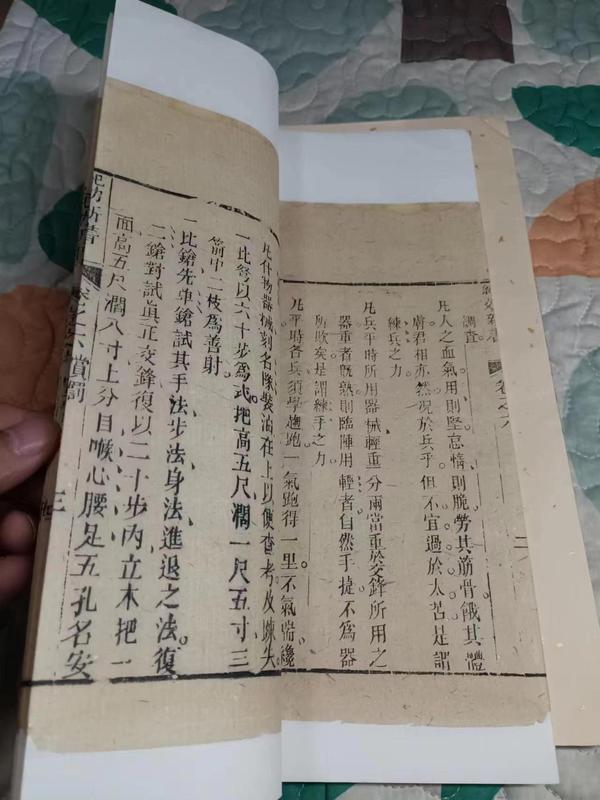 卷之六 二
調查。
凡人之血氣用則堅怠惰則脆勞其筋骨餓其體
膚君相亦然況於兵乎但不宜過於太苦是謂
練兵之力
凡兵平時所用器械輕重分兩當重於交鋒所用之
器重者既熟則臨陣用輕者自然手捷不為器
所欺矣是謂練手之力
凡平時各兵須學趨跑一氣跑得一里不氣喘纔
凡什物器械刻名隊裝油在上以便查考及疎失
一比弩以六十步為式把高五尺濶一尺五寸三
箭中二枝為善射。
一比鎗先单鎗試其手法步法身法進退之法復
二鎗對試真正交鋒復以二十步內立木把一
面高五尺濶八寸上分目喉心腰足五孔名安
賞罰 三